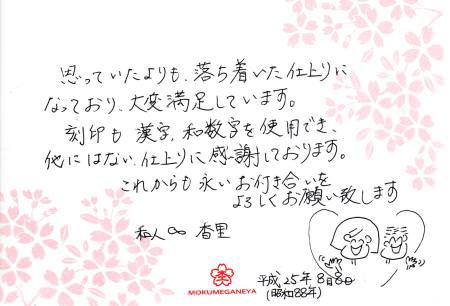 思っていたよりも、落ち着いた仕上りに
なっており、大変満足しています。
刻印も 漢字、和数字を使用でき、
他にはない仕上りに感謝しております。
これからも永いお付き合いを
よろしくお願い致します
和人 ∞ 香里
平成25年8月8日
(昭和88年)
MOKUMEGANEYA